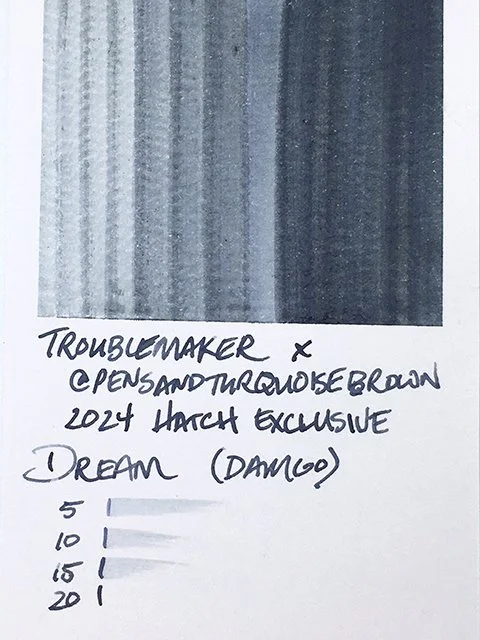 TROUBLEMAKER x
@PENSANDTURQUOISEBROWN
2024 HATCH EXCLUSIVE
DREAM (DAMGO)
5
10
15
20